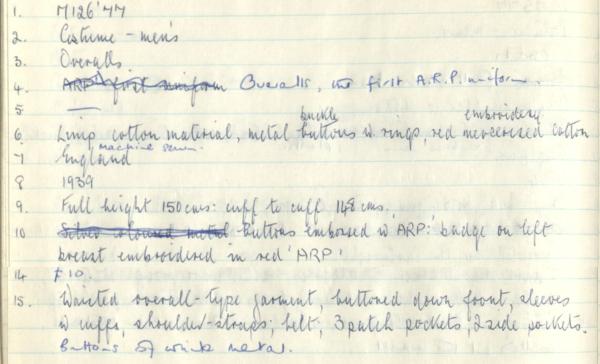 1. M126'77
2. Costume - men's
3. Overalls.
4. ARP first uniform Overalls, the first A.R.P. uniform.
5 —
buckle embroidery
6 Limp cotton material, metal buttons w rings, red mercerised cotton
machine sewn.
7 England
8 1939
9. Full height 150 cms: cuff to cuff 148 cms.
10 Silver coloured metal buttons embossed w 'ARP:' badge on left
breast embroidered in red 'ARP'
14 £10.
15. Waisted overall-type garment, buttoned down front, sleeves
w cuffs, shoulder-straps; belt; 3 patch pockets; 2 side pockets.
Buttons of white metal.